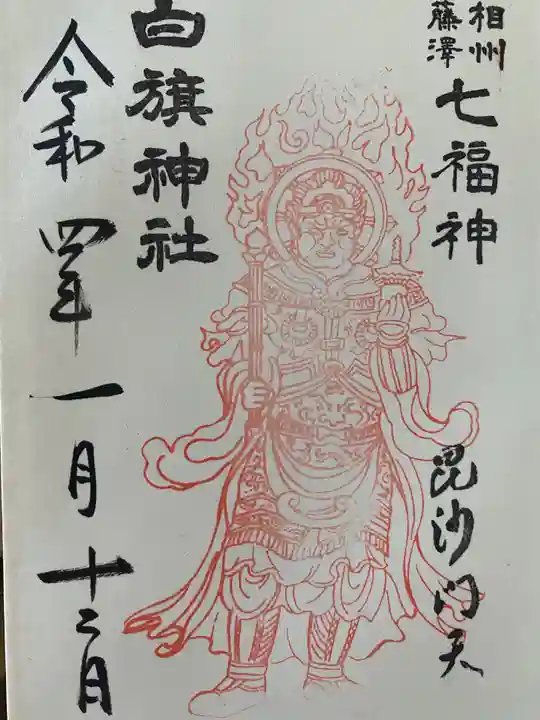 相州
藤澤
七福神
毘沙門天
白旗神社
令和四年一月十二日